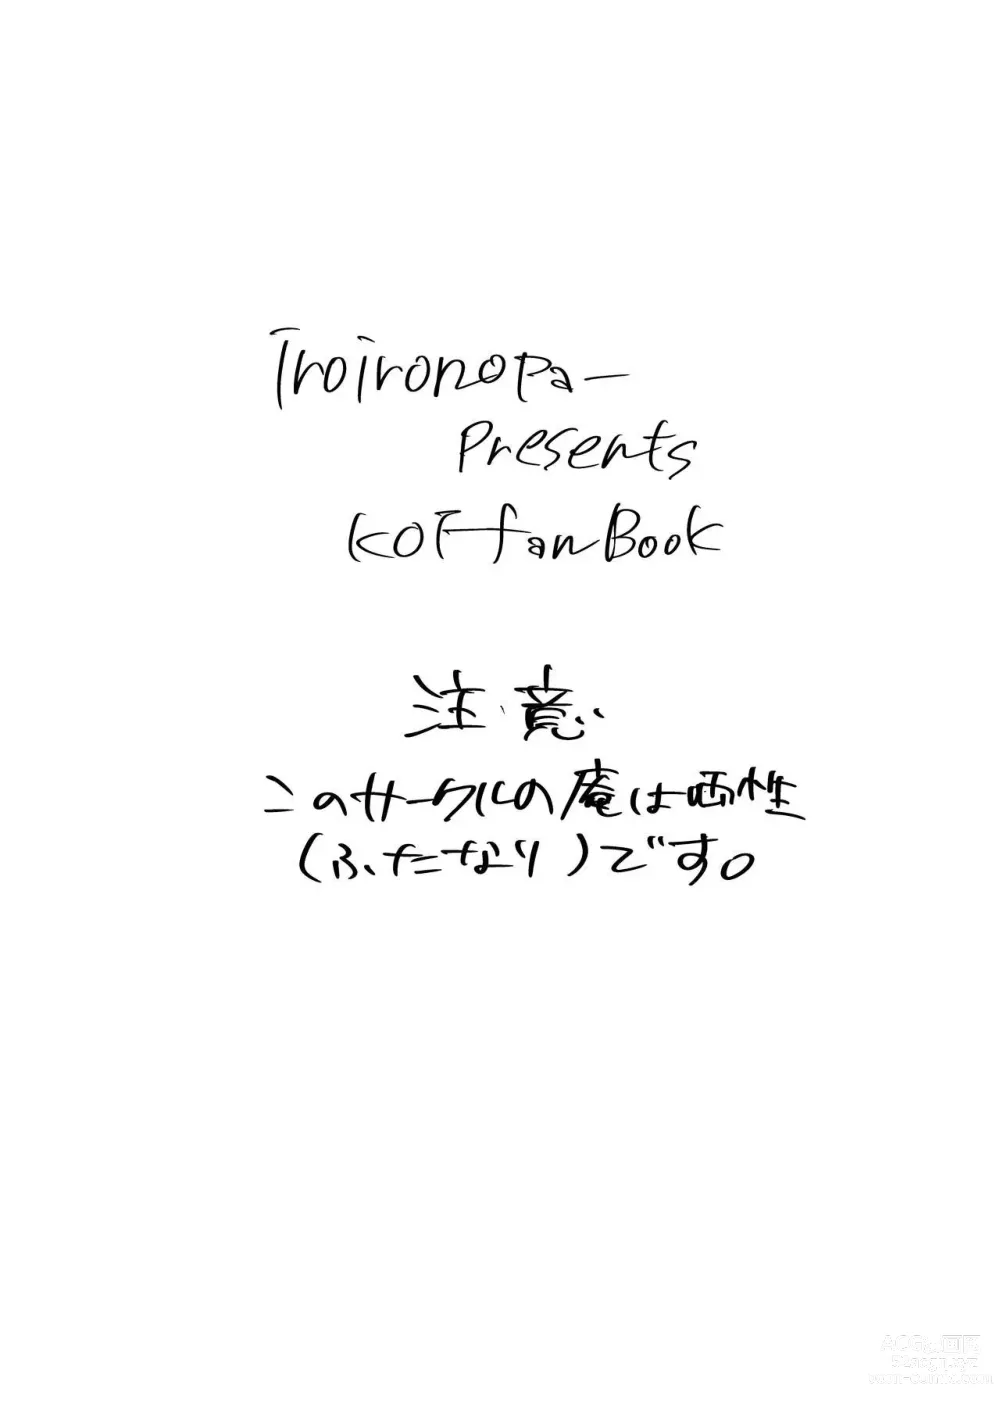 IroIronopa-
Presents
KOF fanBook
注意
このサークルの庵は両性
(ふたなり)です。